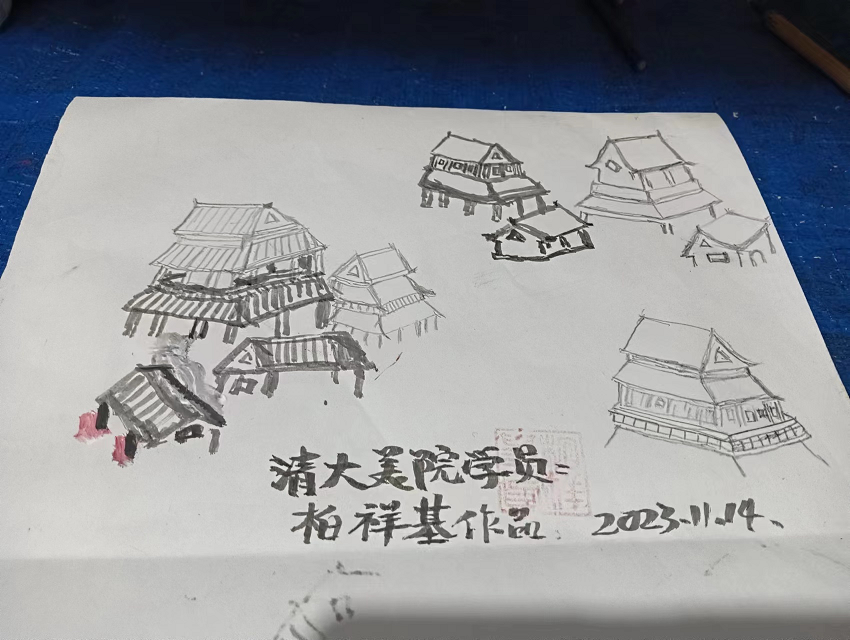 清大美院学员：
柏祥基作品. 2023.11.14.